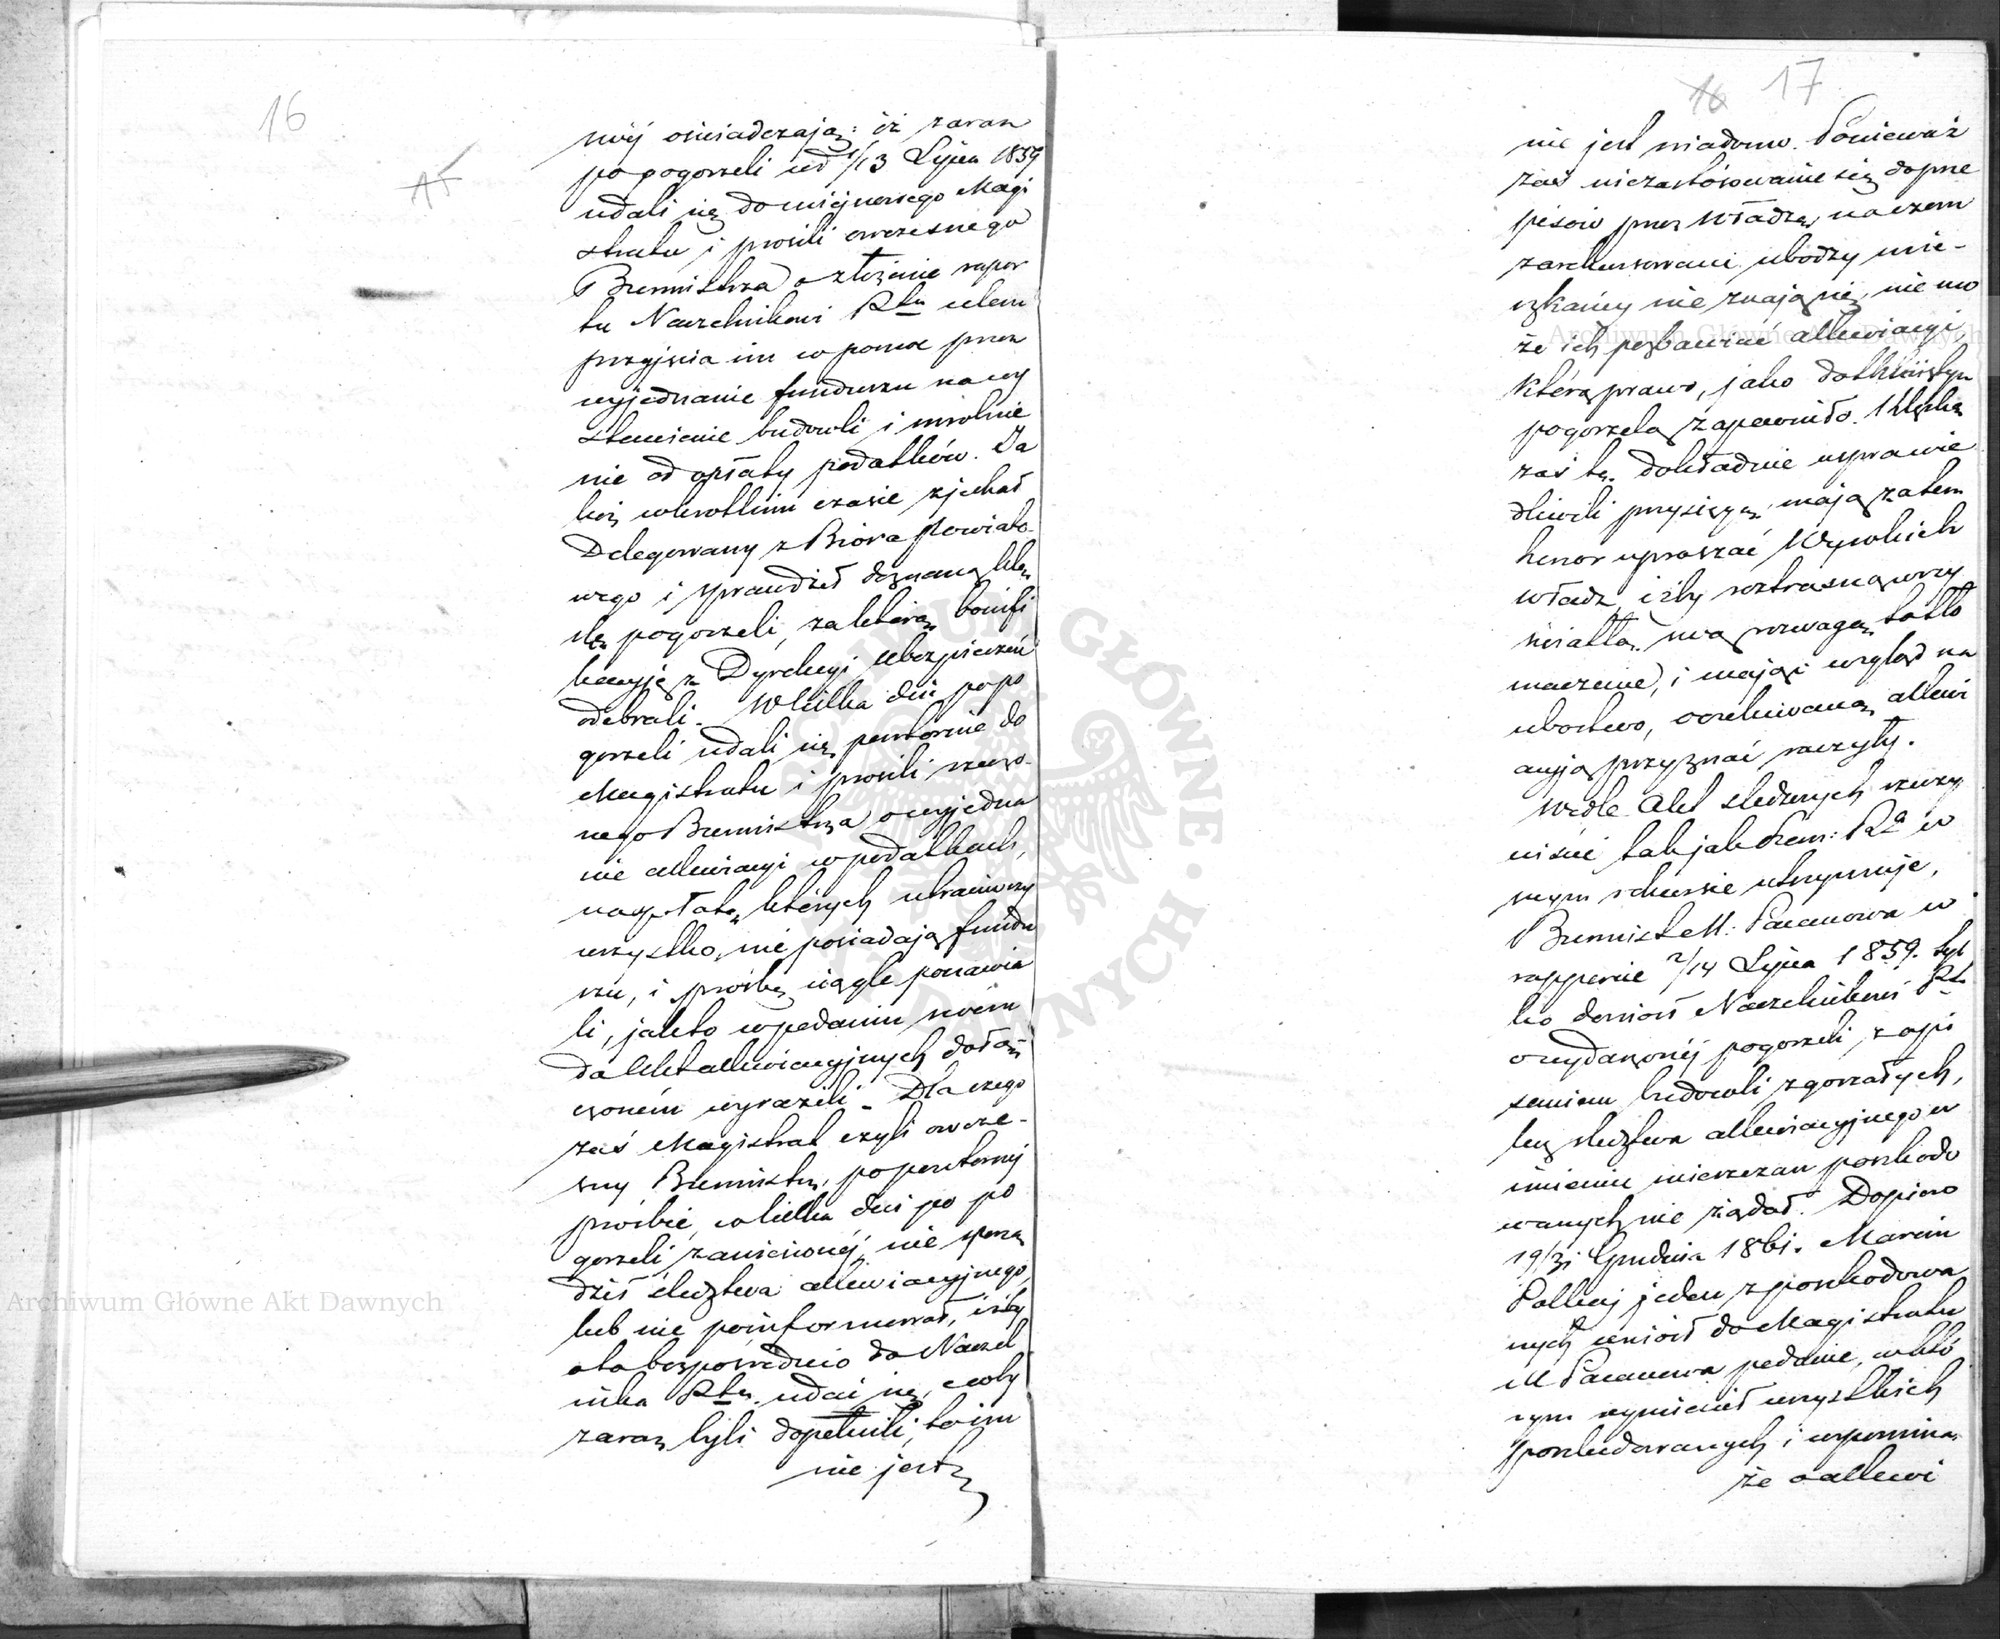 16
nój oświadczają: iż zaraz
po pogorzeli w d 1/13 Lipca 1859
udali się do miejscowego Magi
stratu i prosili owczesnego
Burmistrza o złożenie rapor
tu Naczelnikowi Ptu celem
przyjścia im w pomoc przez
wyjednanie funduszu na wy
stawienie budowli i uwolnie
nie od opłaty podatków. Ja
koż wkrótkim czasie zjechał
Delegowany z Biora Powiato
wego i sprawdził doznaną klę
skę pogorzeli, za którą bonifi
kacyję z Dyrekcyi Ubezpieczeń
odebrali. W kilka dni po po
gorzeli udali się powtórnie do
Magistratu i prosili rzeczo
nego Burmistrza o wyjedna
nie allewiacyi w podatkach,
na opłatę których utraciwszy
wszystko, nie posiadają fundu
szu, i prośbę ciągle ponawia
li, jak to w podaniu swoim
da Akt allewiacyjnych dołą
czoném wyrazili. Dla czego
zaś Magistrat czyli owcze-
sny Burmistrz, po powtórnéj
prośbie, w kilka dni po po
gorzeli zaniesionéj, nie sporzą
dził śledztwa allewiacyjnego,
lub nie poinformował, iżby
oto bezpośrednio do Naczel
nika Ptu udać się, coby
zaraz byli dopełnili, to im
nie jest
16 17
nie jest wiadomo. Ponieważ
zaś niezastósowanie się do prze
pisów przez Władzę, na czem
zarekurowani ubodzy mie-
szkańcy nie znają się, nie mo
że ich pozbawiać allewiacyi
którą prawo, jako dotkniętym
pogorzelą zapewniło. Klęskę
zaś tę dokładnie usprawie
dliwili przysięgą, mają zatem
honor upraszać Wysokich
Władz, iżby roztrząsnąwszy
światłą swą rozwagą toż tło
maczenie, i mając wzgląd na
ubóstwo, oczekiwaną allewi
acyją przyznać raczyły.
Wedle Akt śledczych rzeczy
wiście tak jak Rząd
swym rekursie utrzymuje,
Burmistrz M: Pacanowa w
rapporcie 2/14 Lipca 1859. tyl
ko doniosł Naczelnikowi Ptu
o wydarzonéj pogorzeli, z opi
saniem budowli zgorzałych,
lecz śledztwa allewiacyjnego w
imieniu mieszczan poszkodo
wanych nie żądał. Dopiero
19/31 Grudnia 1861. Marcin
Palluj jeden z poszkodowa
nych wniósł do Magistratu
M Pacanowa podanie, w któ
rym wymienił wszystkich
poszkodowanych i wspomina,
że o allewi
Archiwum Główne Akt Dawnych
Archiwum Główne Akt Dawnych
ARCHIWUM GŁÓWNE AKT DAWNYCH